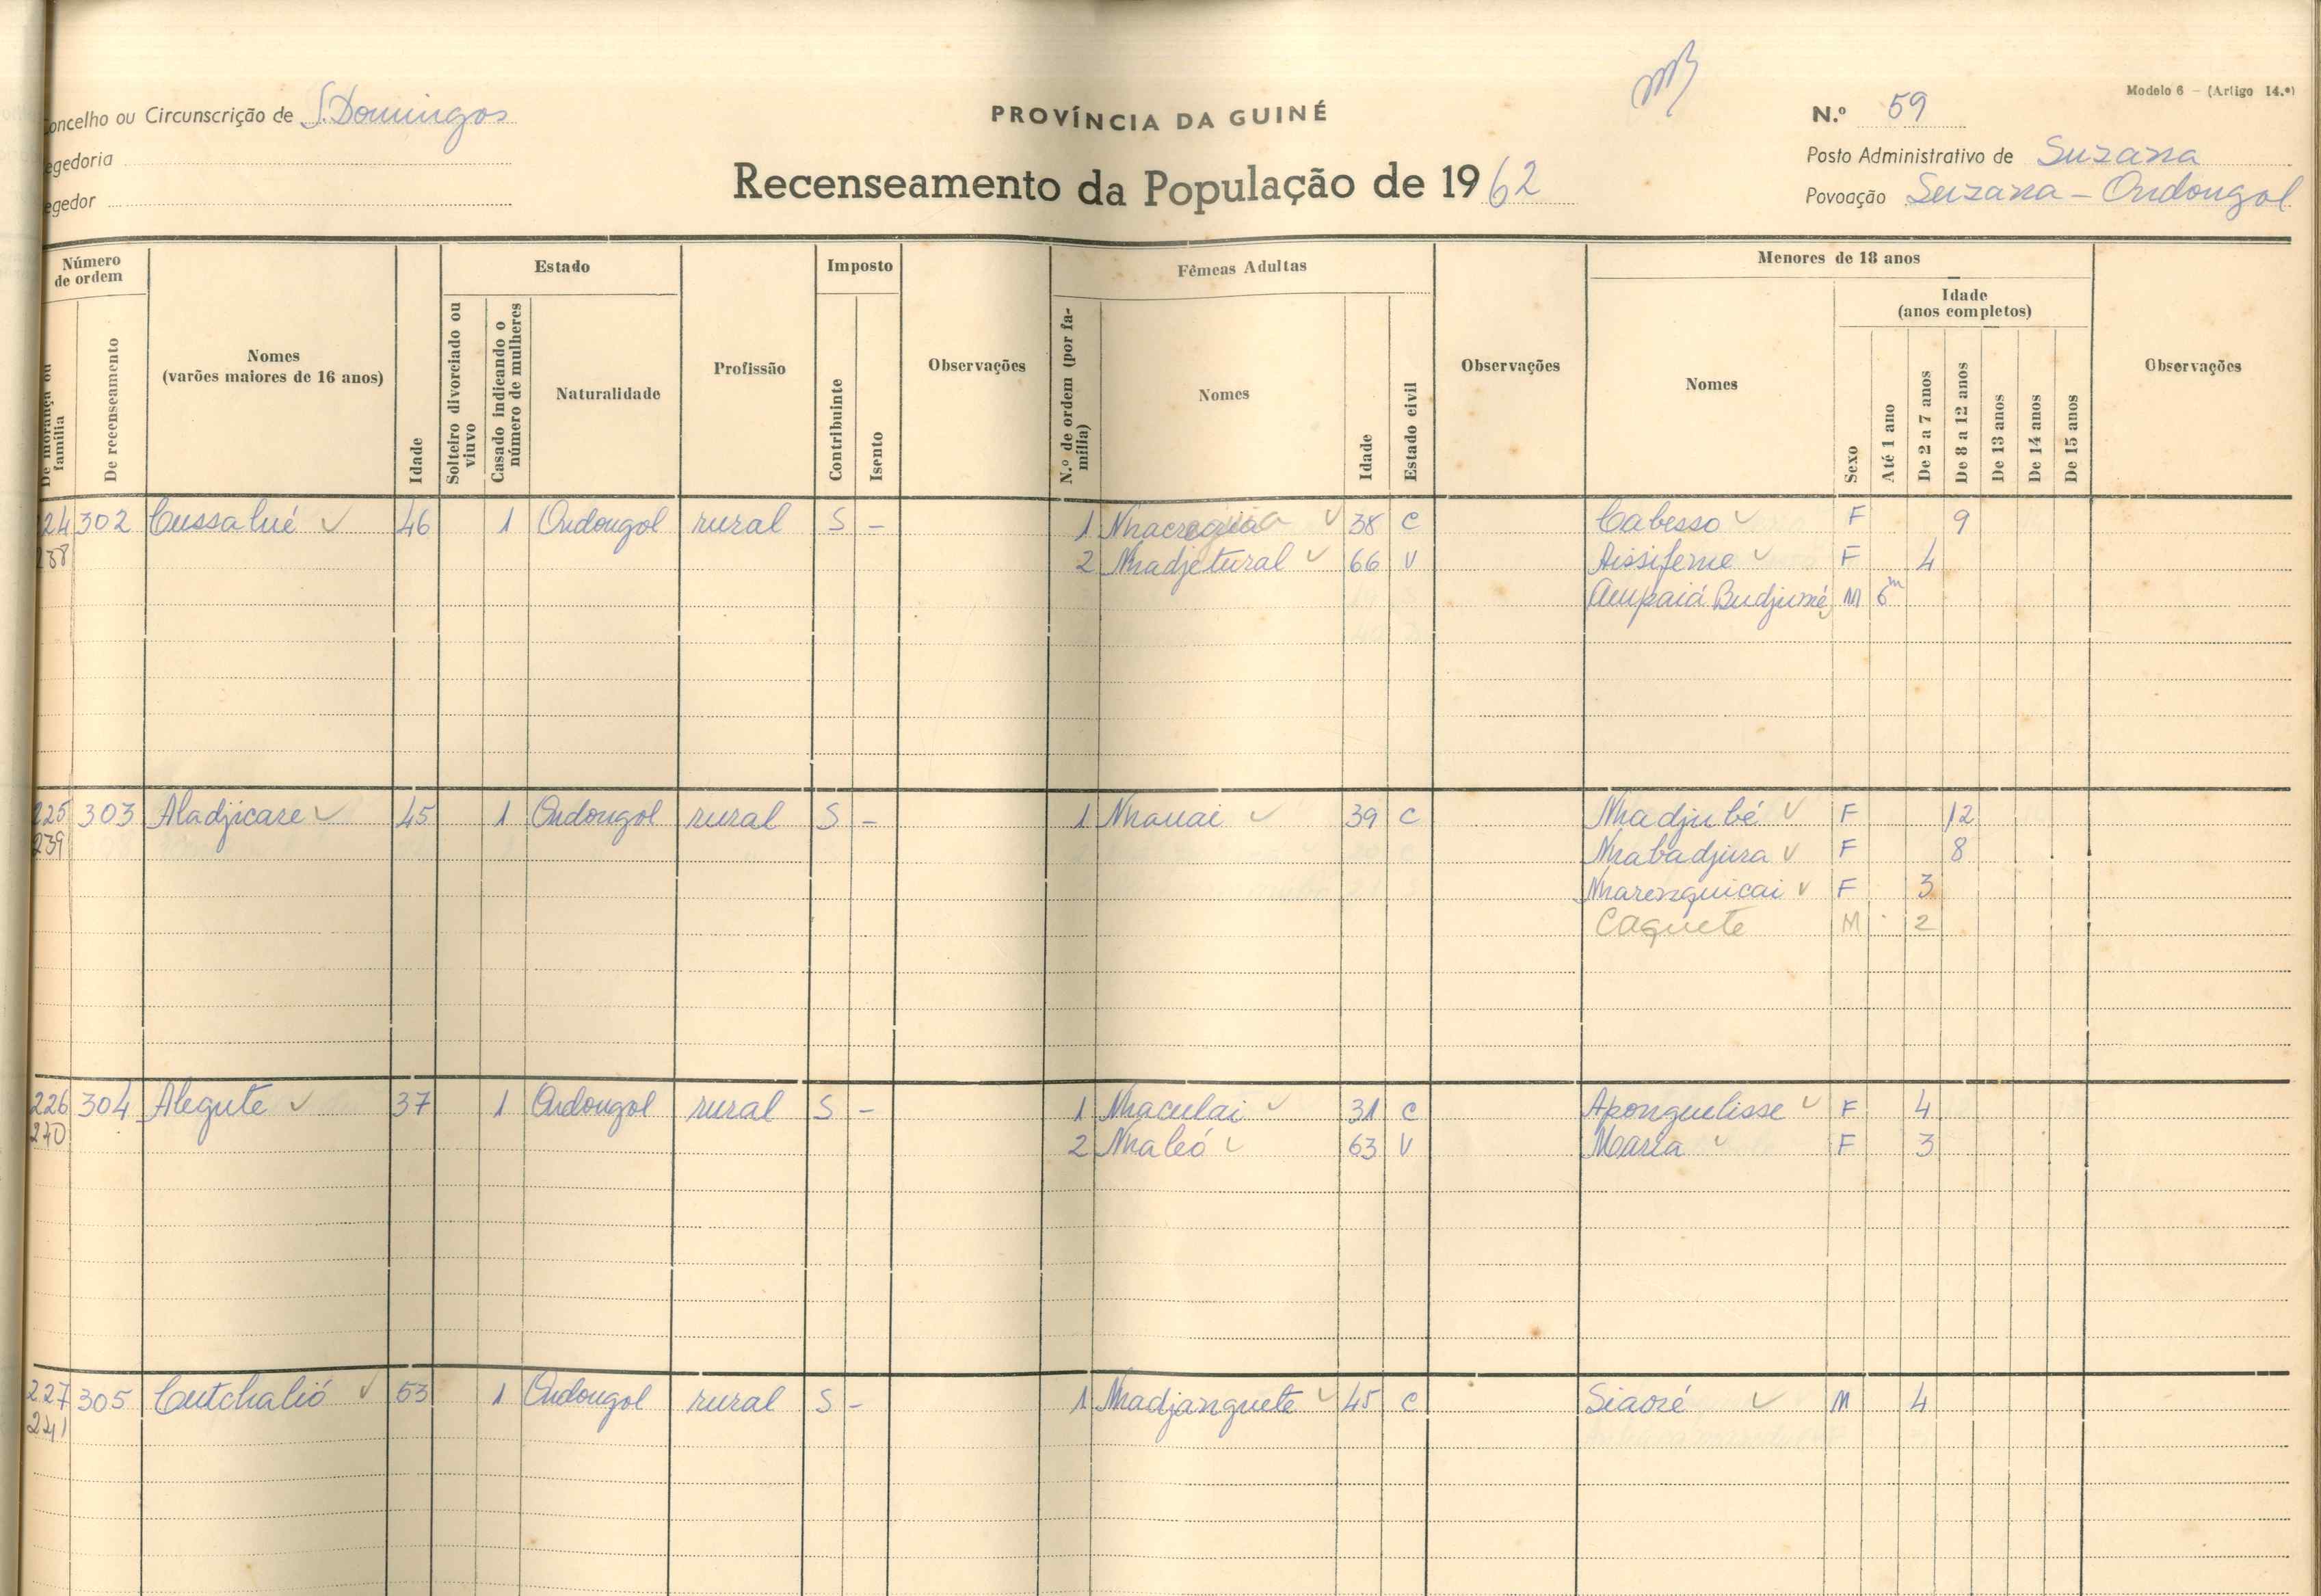 Modelo 6 — (Artigo 14.º)
oncelho ou Circunscrição de S. Domingos
PROVÍNCIA DA GUINÉ
N.º 59
egedoria
Posto Administrativo de Suzana
egedor
Recenseamento da População de 1962
Povoação Suzana - Ondougol
Número de ordem
Estado
Imposto
Fêmeas Adultas
Menores de 18 anos
Idade (anos completos)
De morança ou família
De recenseamento
Nomes (varões maiores de 16 anos)
Idade
Solteiro divorciado ou viuvo
Casado indicando o número de mulheres
Naturalidade
Profissão
Contribuinte
Isento
Observações
N.º de ordem (por família)
Nomes
Idade
Estado civil
Observações
Nomes
Sexo
Até 1 ano
De 2 a 7 anos
De 8 a 12 anos
De 13 anos
De 14 anos
De 15 anos
Observações
24 302 Cussalué ✓ 46 1 Ondougol rural S – 1 ✓ 38 C Cabesso ✓ F 9
238 2 Nhadjetural ✓ 66 V Aissifeme ✓ F 4
Ampaiá Budjumé M 6m
225 303 Aladjicare ✓ 45 1 Ondougol rural S – 1 Nhauai ✓ 39 C Nhadjubé ✓ F 12
239 Nhabadjura ✓ F 8
Nharenquicai ✓ F 3
Caquete M 2
226 304 Alegute ✓ 37 1 Ondougol rural S – 1 Nhaculai ✓ 31 C Aponguelisse ✓ F 4
240 2 Nhaleó ✓ 63 V Maria ✓ F 3
227 305 Cutchalió ✓ 53 1 Ondougol rural S – 1 Nhadjanguete ✓ 45 C Siaoré ✓ M 4
241